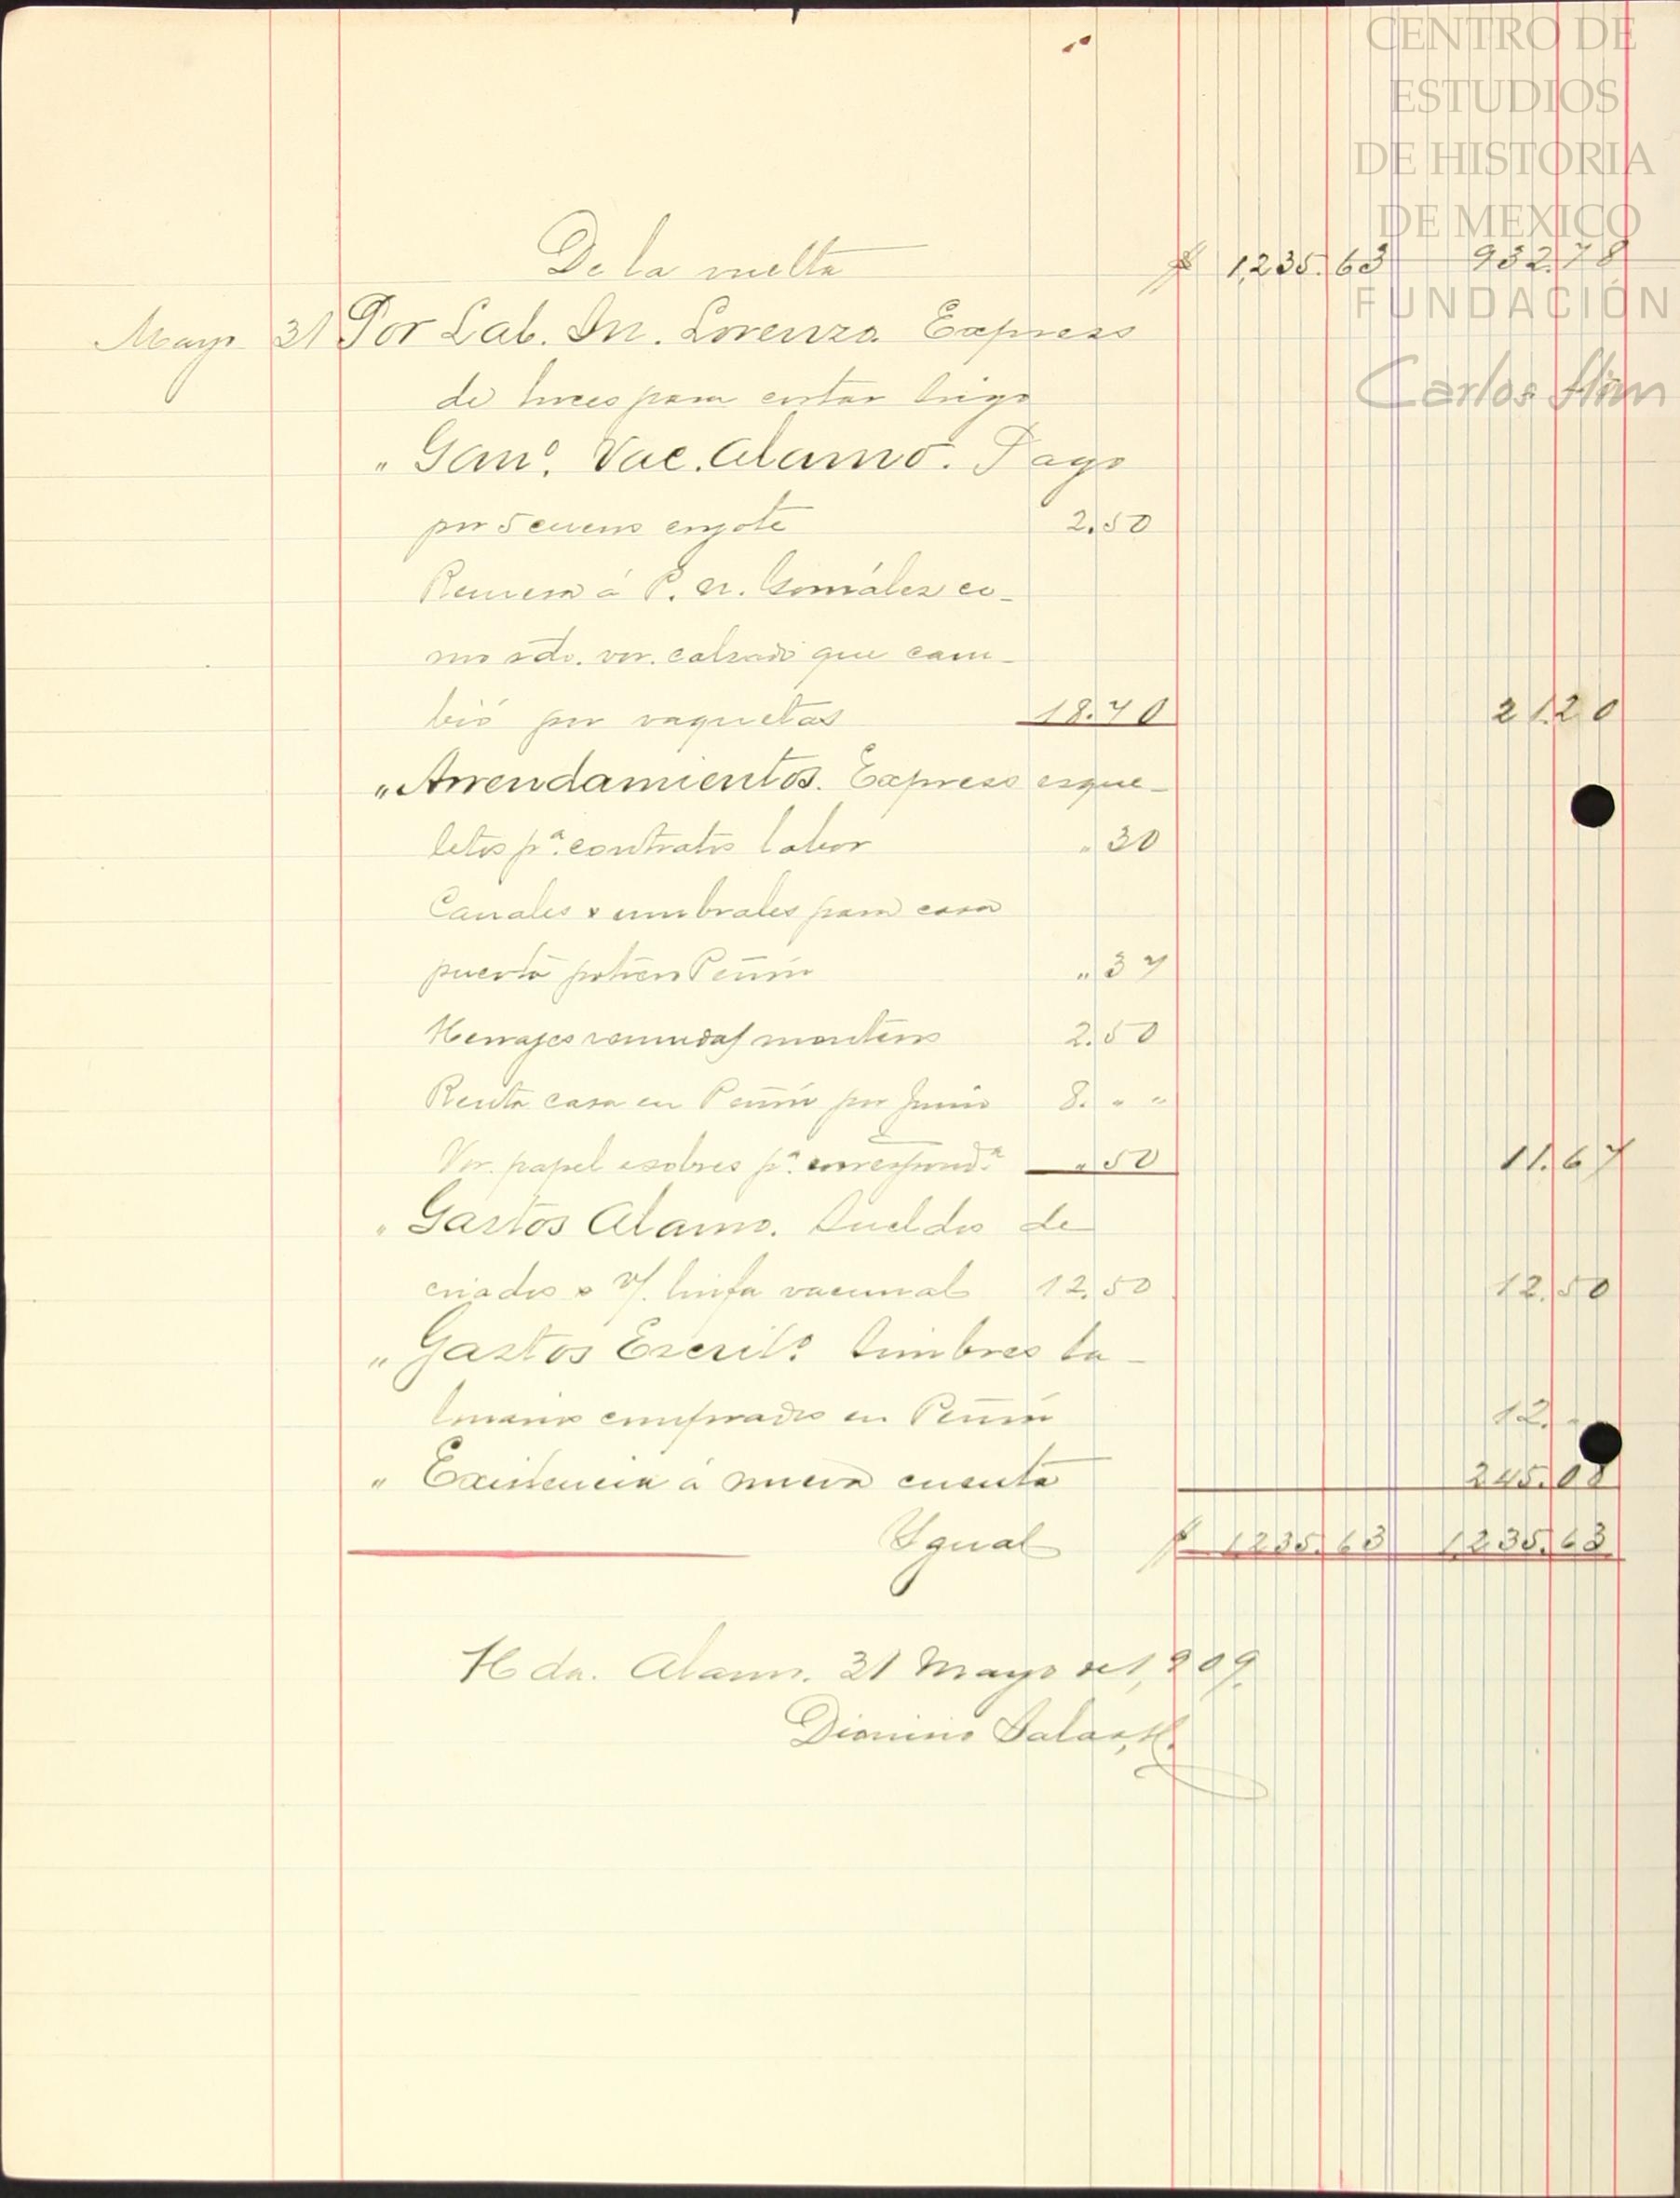 CENTRO DE
ESTUDIOS
DE HISTORIA
DE MEXICO
FUNDACIÓN
Carlos Slim
De la vuelta $ 1,235.63 932.78
Mayo 31 Por Lab. Sn. Lorenzo. Express
de hoces para cortar trigo
" Gano. Vac. Alamo. Pago
por 5 cueros coyote 2.50
Remesa á P. N. González co-
mo sdo. vor. calzado que cam-
bió por vaquetas 18.70 21.20
" Arrendamientos. Express esque-
letos pa. contratos labor " 30
Canales umbrales para casa
puerta potrero Peñón " 37
Herrajes remuda montero 2.50
Renta casa en Peñón por Junio 8. " "
Vor. papel sobres pa. corresponda. " 50 11.67
" Gastos Alamo. Sueldos de
criados linfa vacunal 12.50 12.50
" Gastos Escrito. timbres ta-
lonario comprados en Peñón 12. "
" Existencia á nueva cuenta 245.08
Ygual $ 1235.63 1,235.63
Hda. Alamo. 31 Mayo de 1,909.
Dionisio Salas, H.